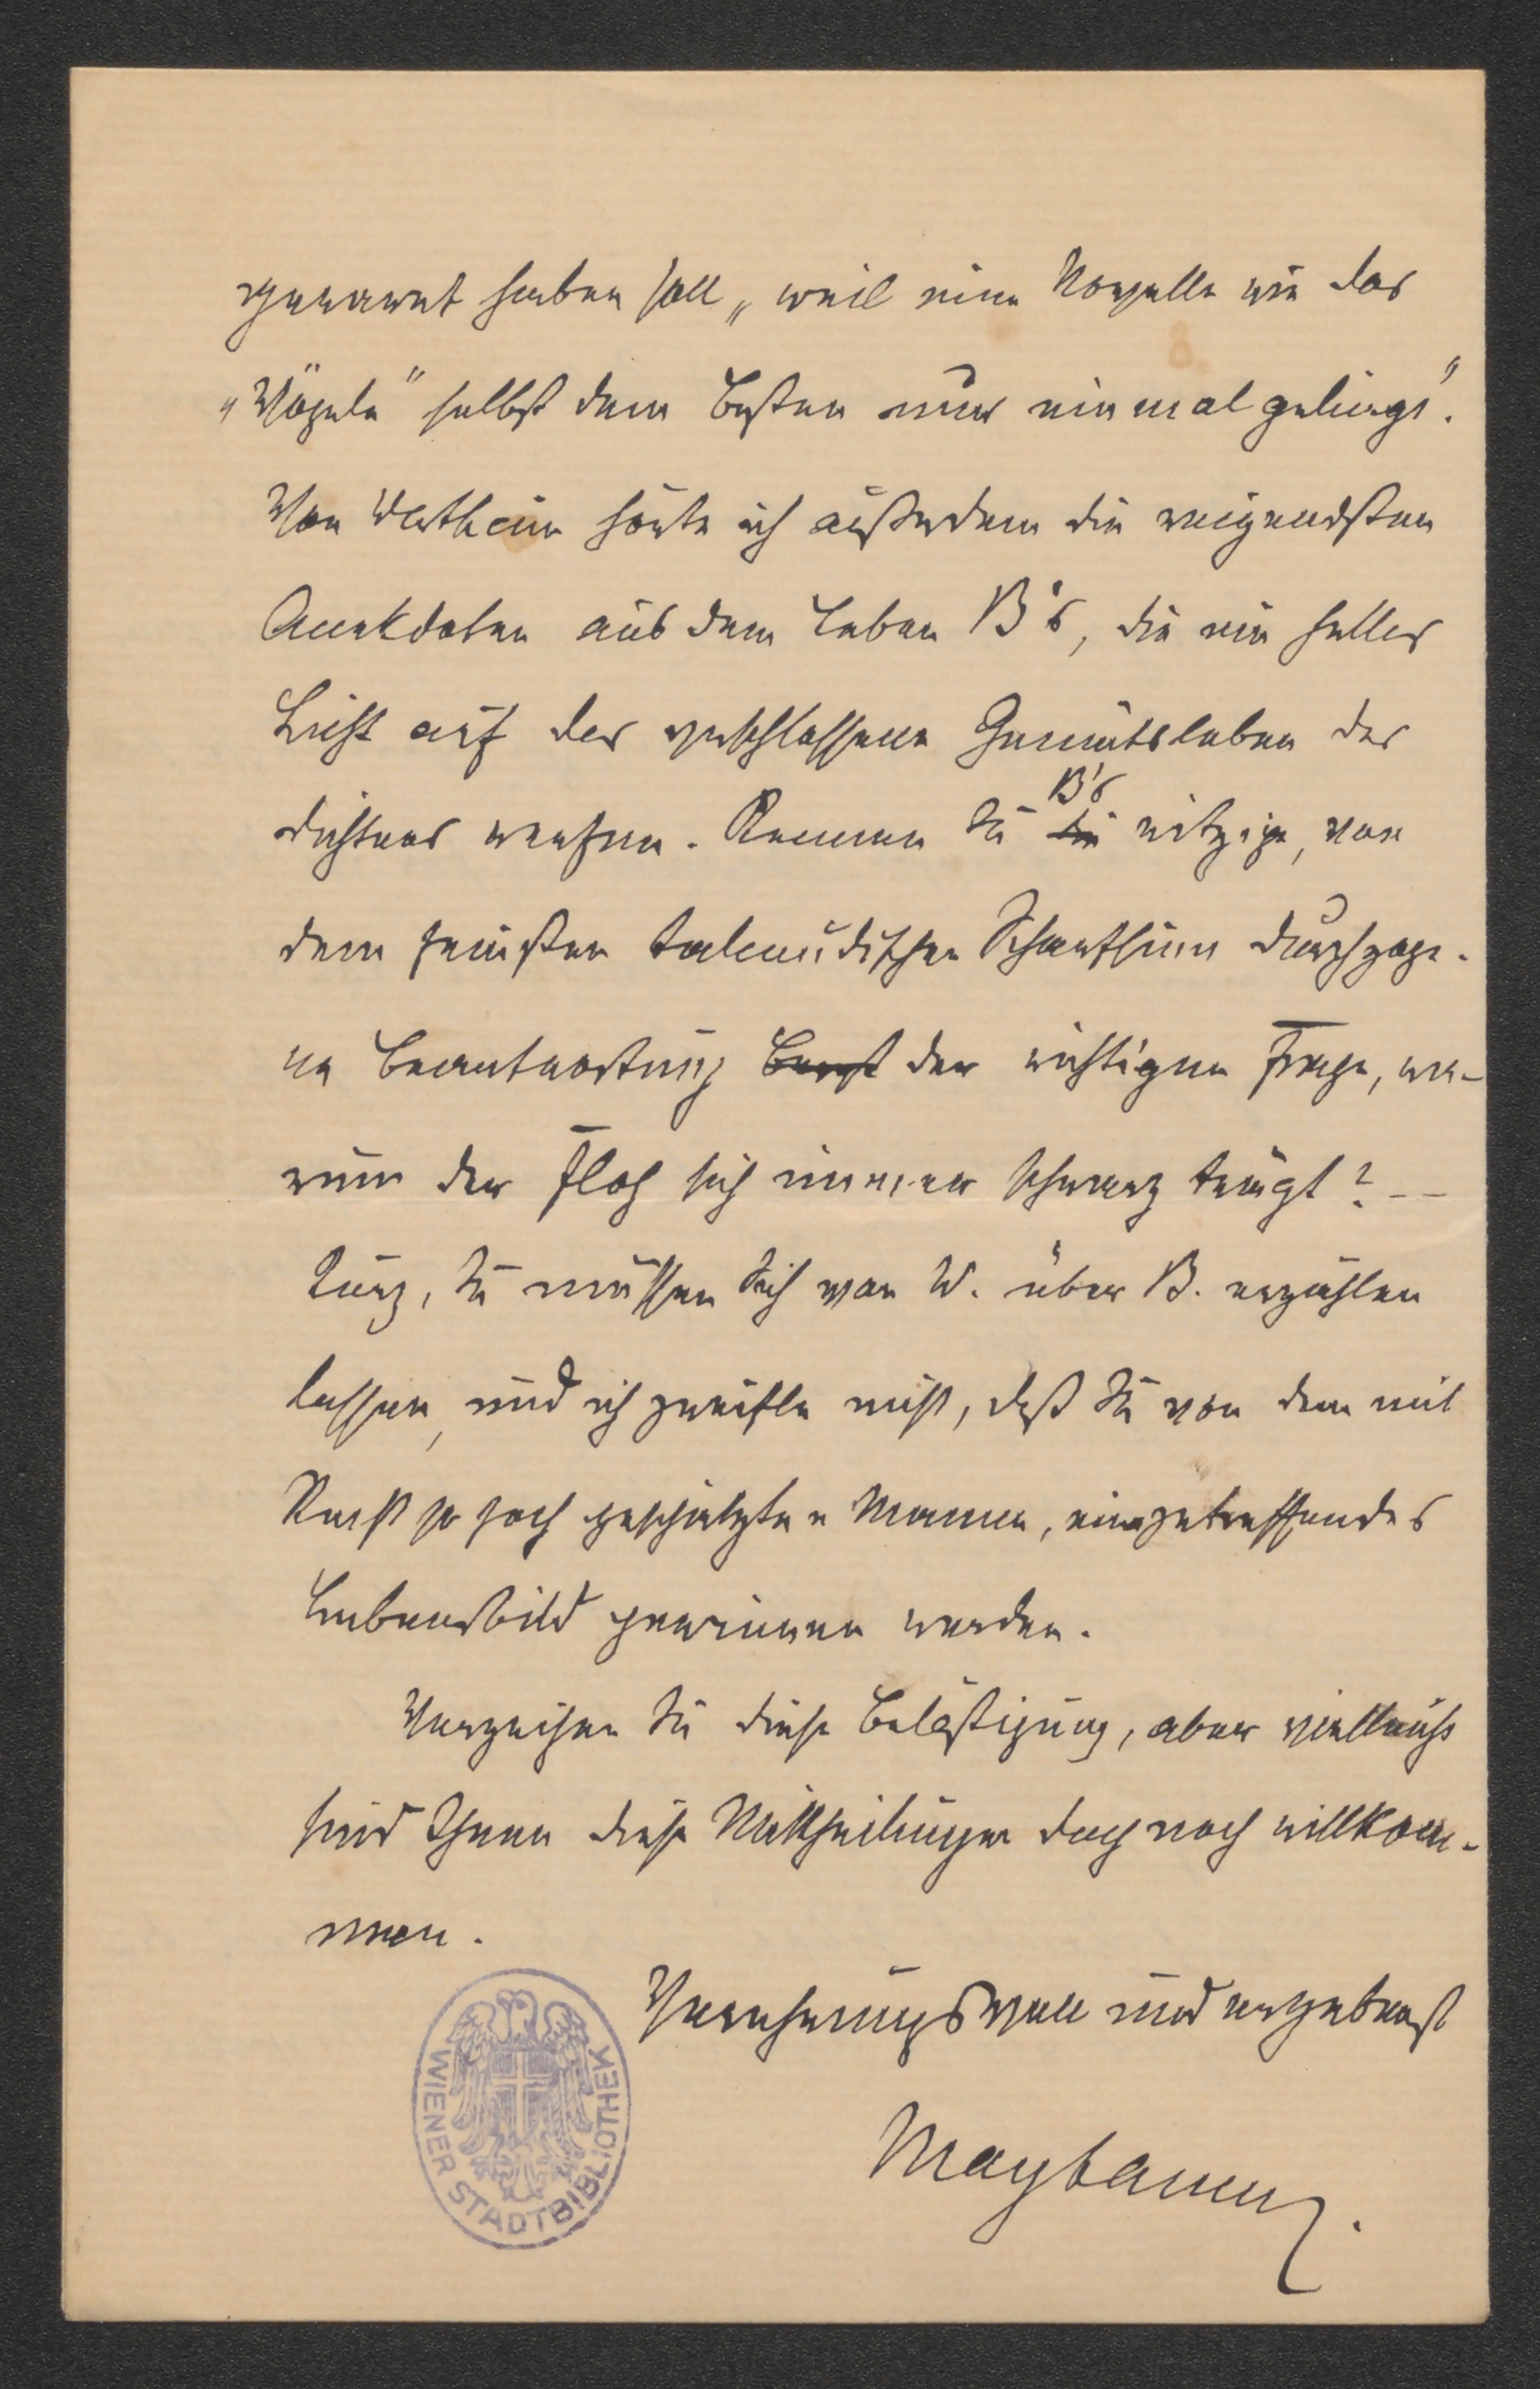 gewarnt haben soll „weil eine Novelle wie das
„Vögele" selbst dem Besten nur einmal gelingt".
Von Wertheim hörte ich außerdem die reizendsten
Anekdoten aus dem Leben B's, die ein helles
Licht auf das verschlossene Gemütsleben des
Dichters werfen. Kennen Sie B's die witzige, von
dem feinsten talmudischen Scharfsinn durchzoge-
ne Beantwortung der wichtigen Frage, wa-
rum der Floh sich immer schwarz trägt? --
Kurz, Sie müssen Sich von W. über B. erzählen
lassen, und ich zweifle nicht, daß Sie von dem mit
Recht so hoch geschätzten Manne, ein zutreffendes
Lebensbild gewinnen werden.
Verzeihen Sie diese Belästigung, aber vielleicht
sind Ihnen diese Mittheilungen doch noch willkom-
men.
Verehrungsvoll und ergebenst
Maybaum.
WIENER STADTBIBLIOTHEK